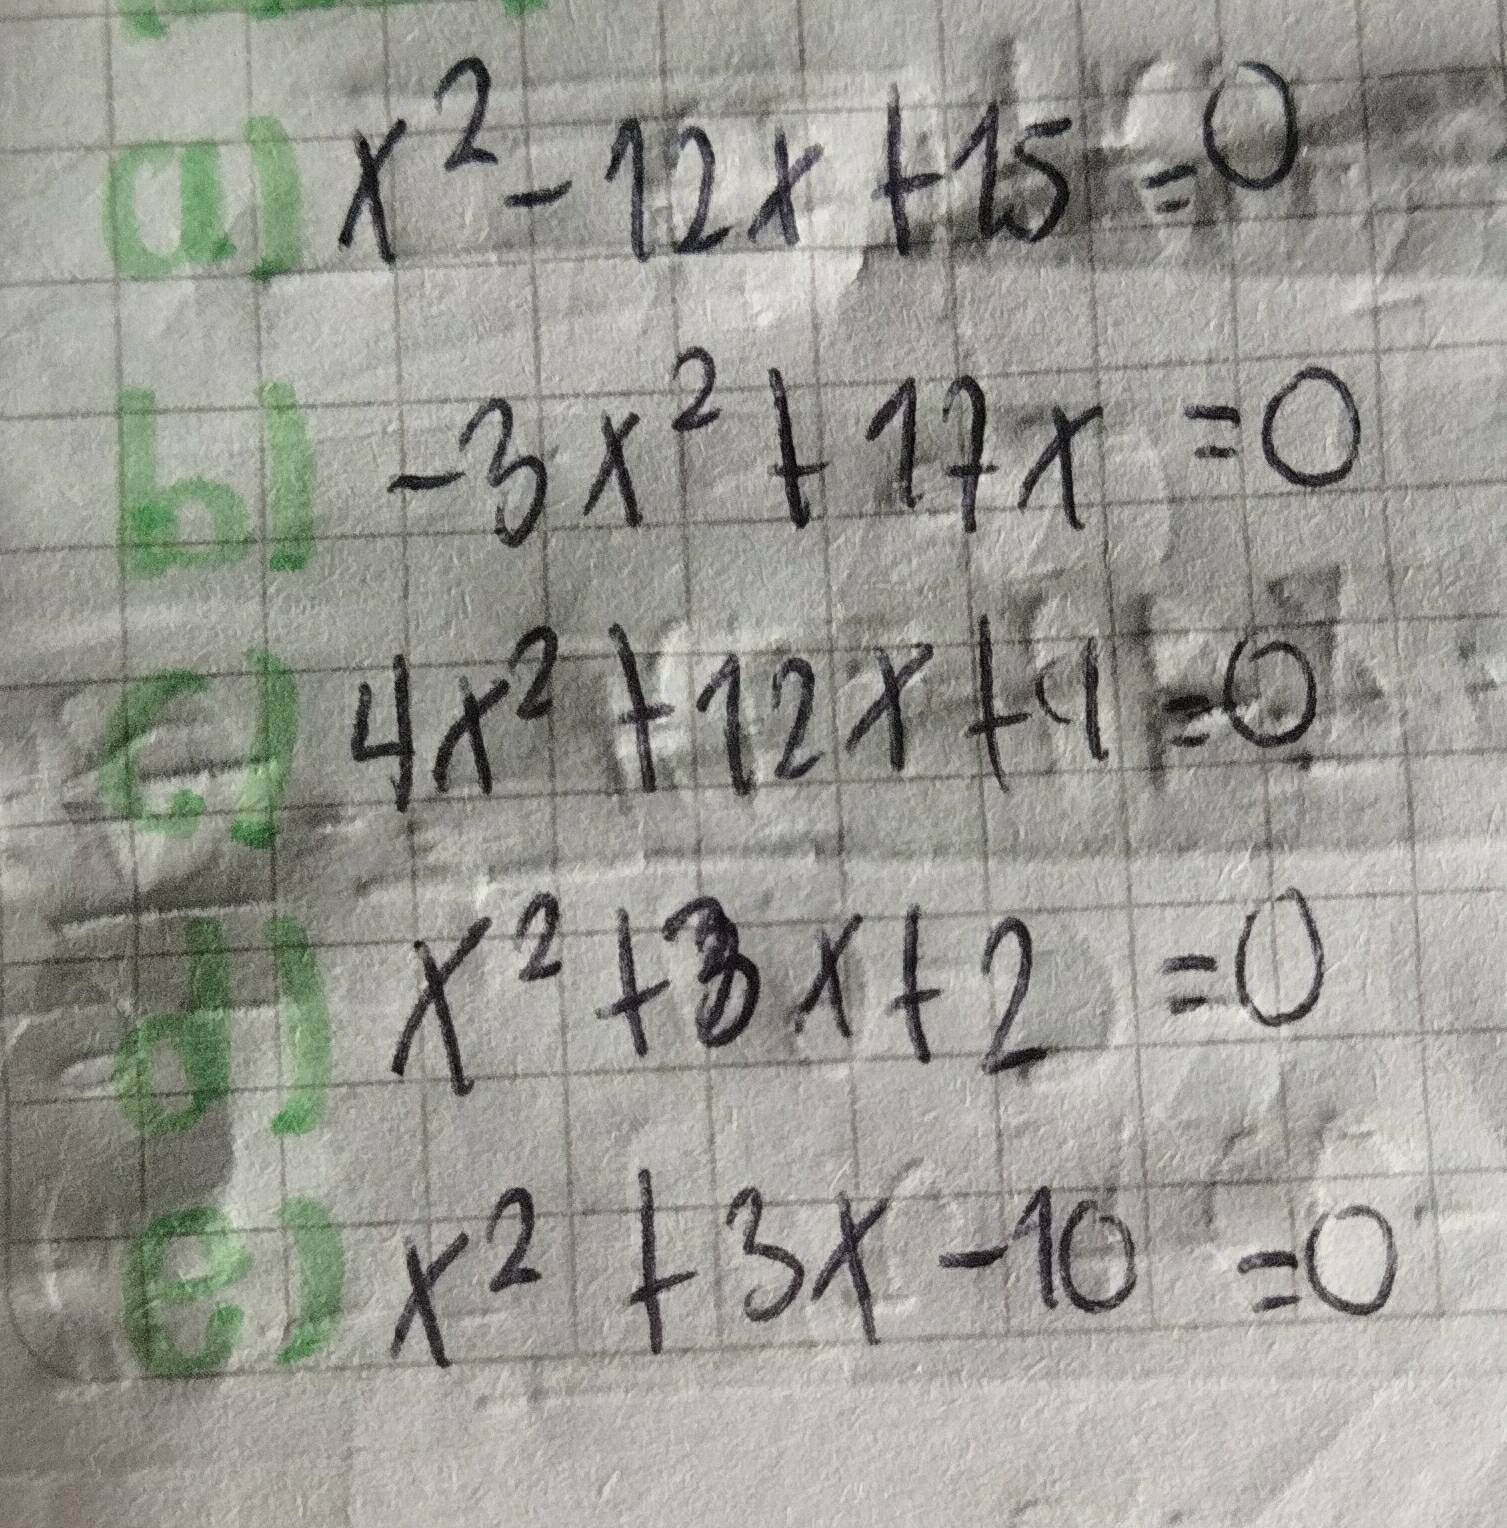 a) x² - 12x + 15 = 0
b) -3x² + 17x = 0
c) 4x² + 12x + 9 = 0
d) x² + 3x + 2 = 0
e) x² + 3x - 10 = 0